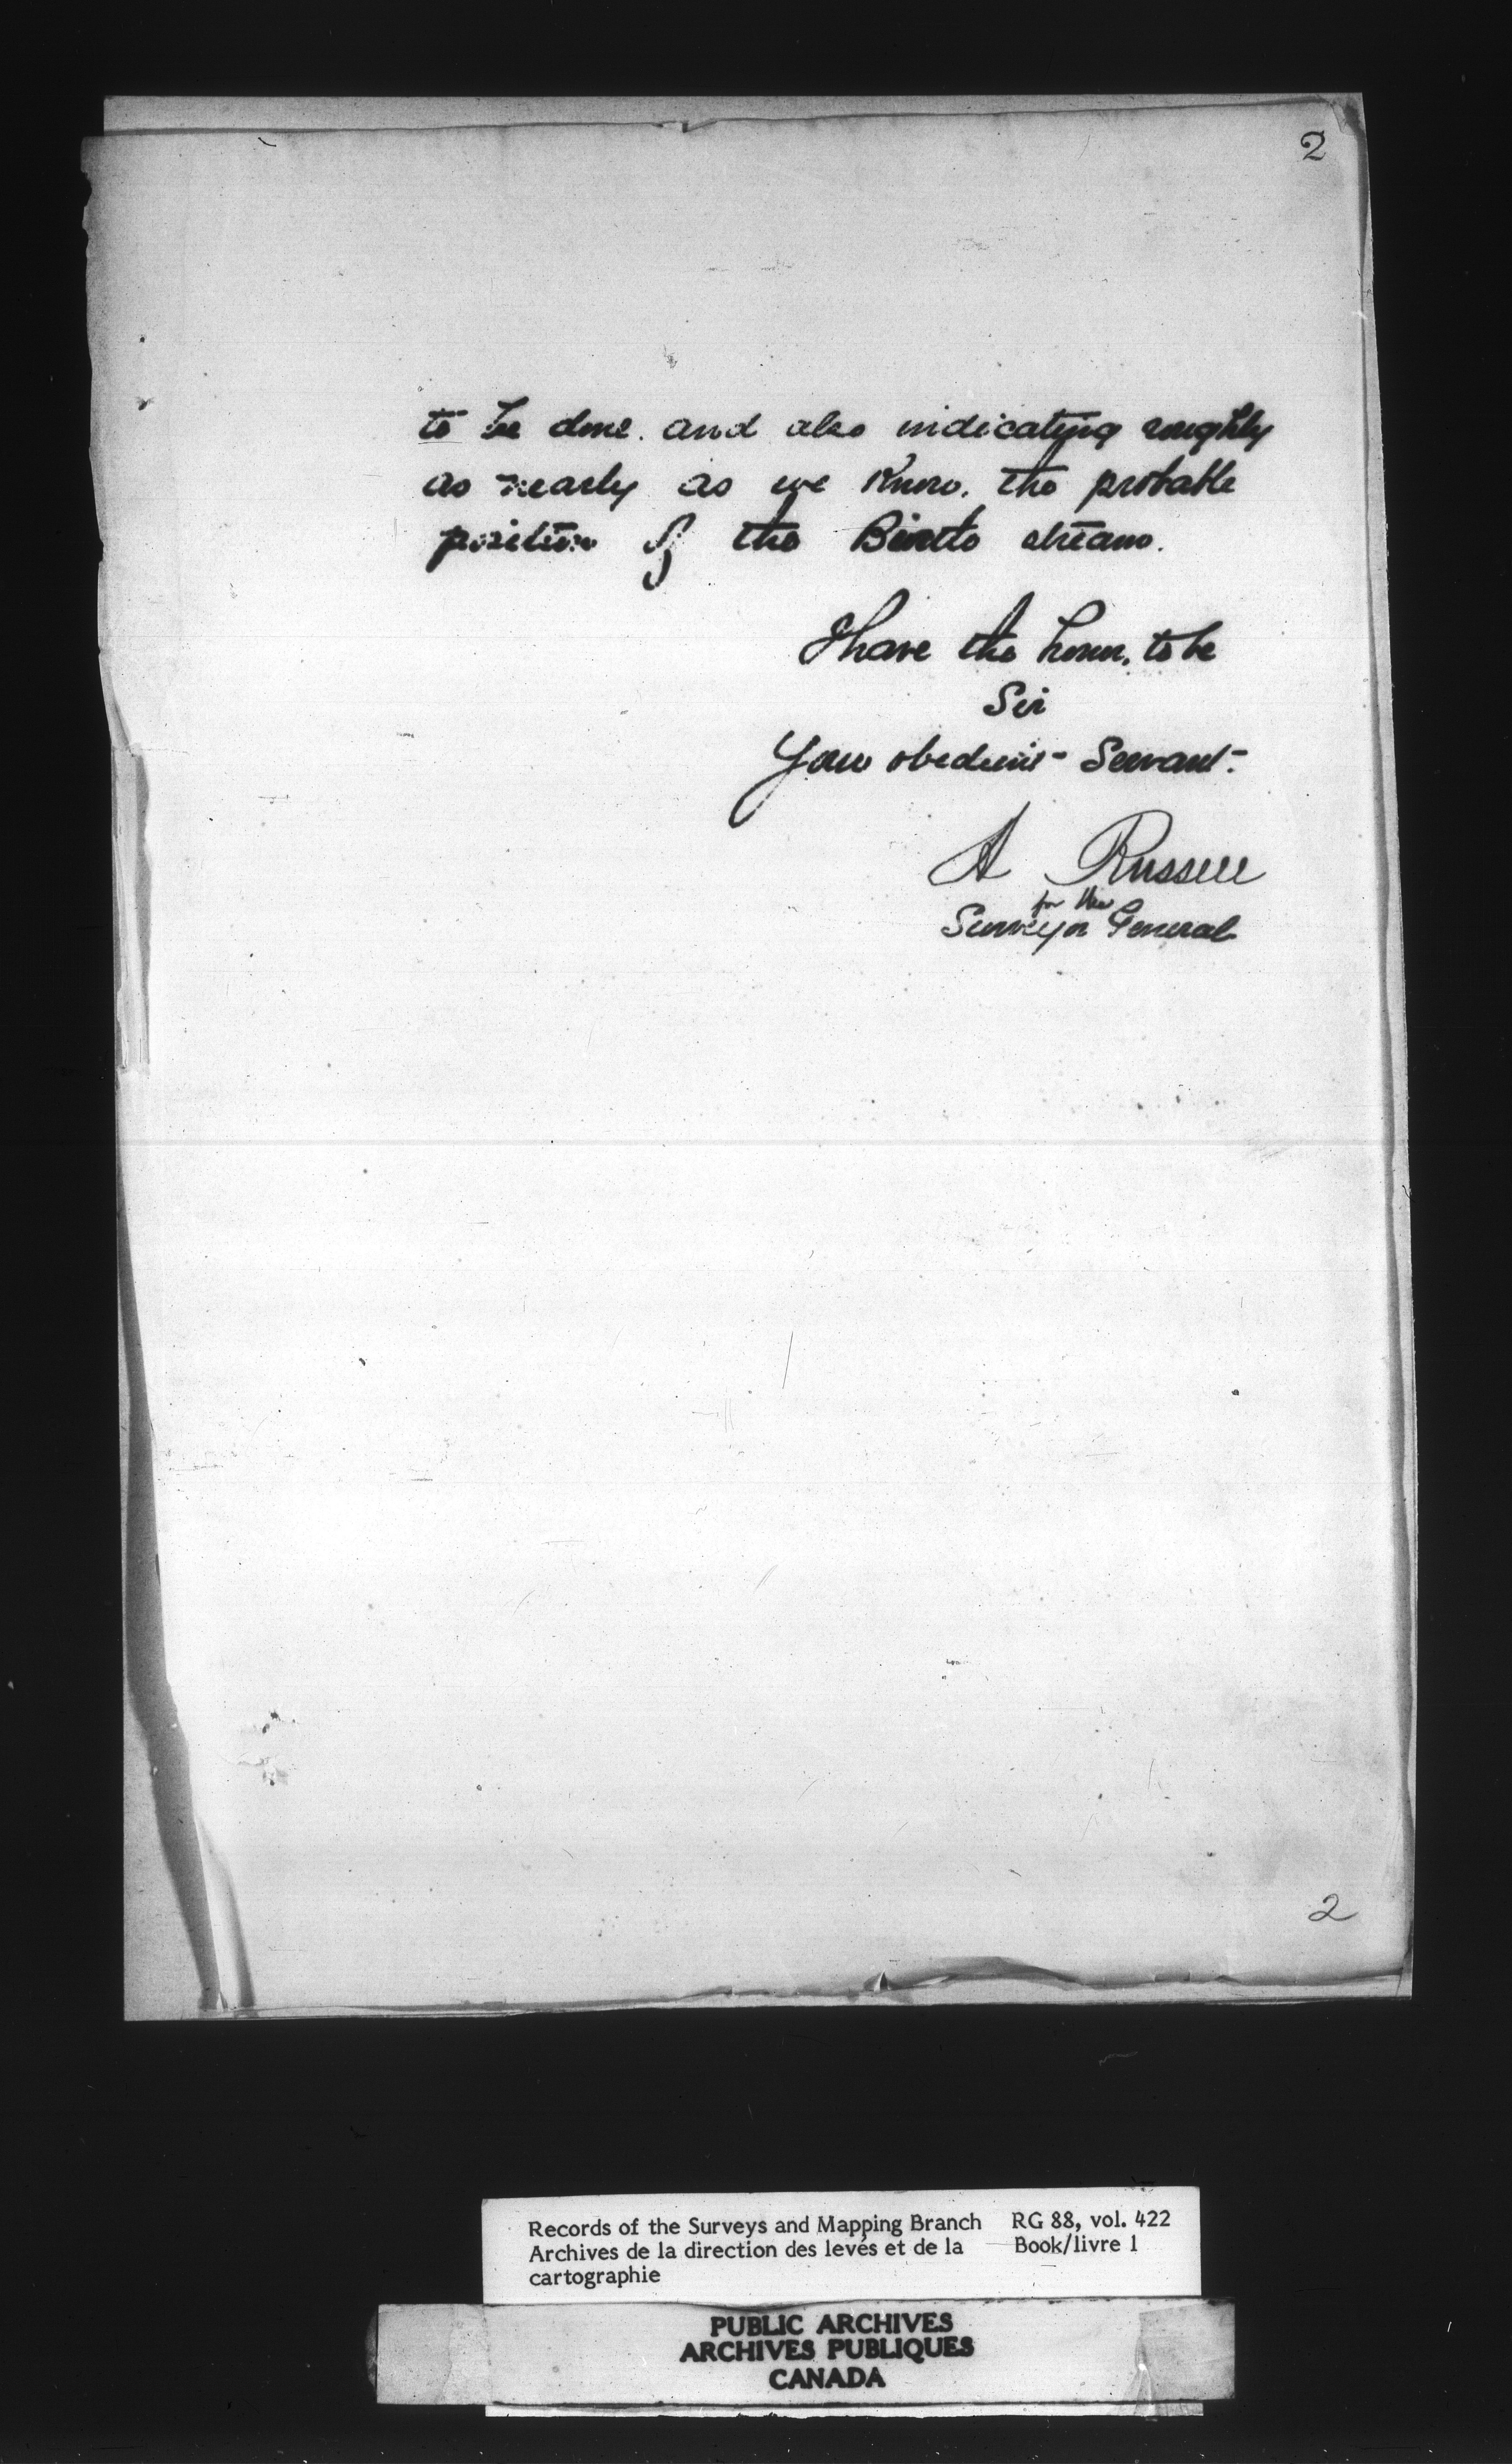 2
to be done. and also indicating roughly
as nearly as we know. the probable
position of the stream.
I have the honor, to be
Sir
Your obedient Servant.
A Russell
for the
Surveyor General
2
Records of the Surveys and Mapping Branch RG 88, vol. 422
Archives de la direction des levés et de la Book/livre 1
cartographie
PUBLIC ARCHIVES
ARCHIVES PUBLIQUES
CANADA